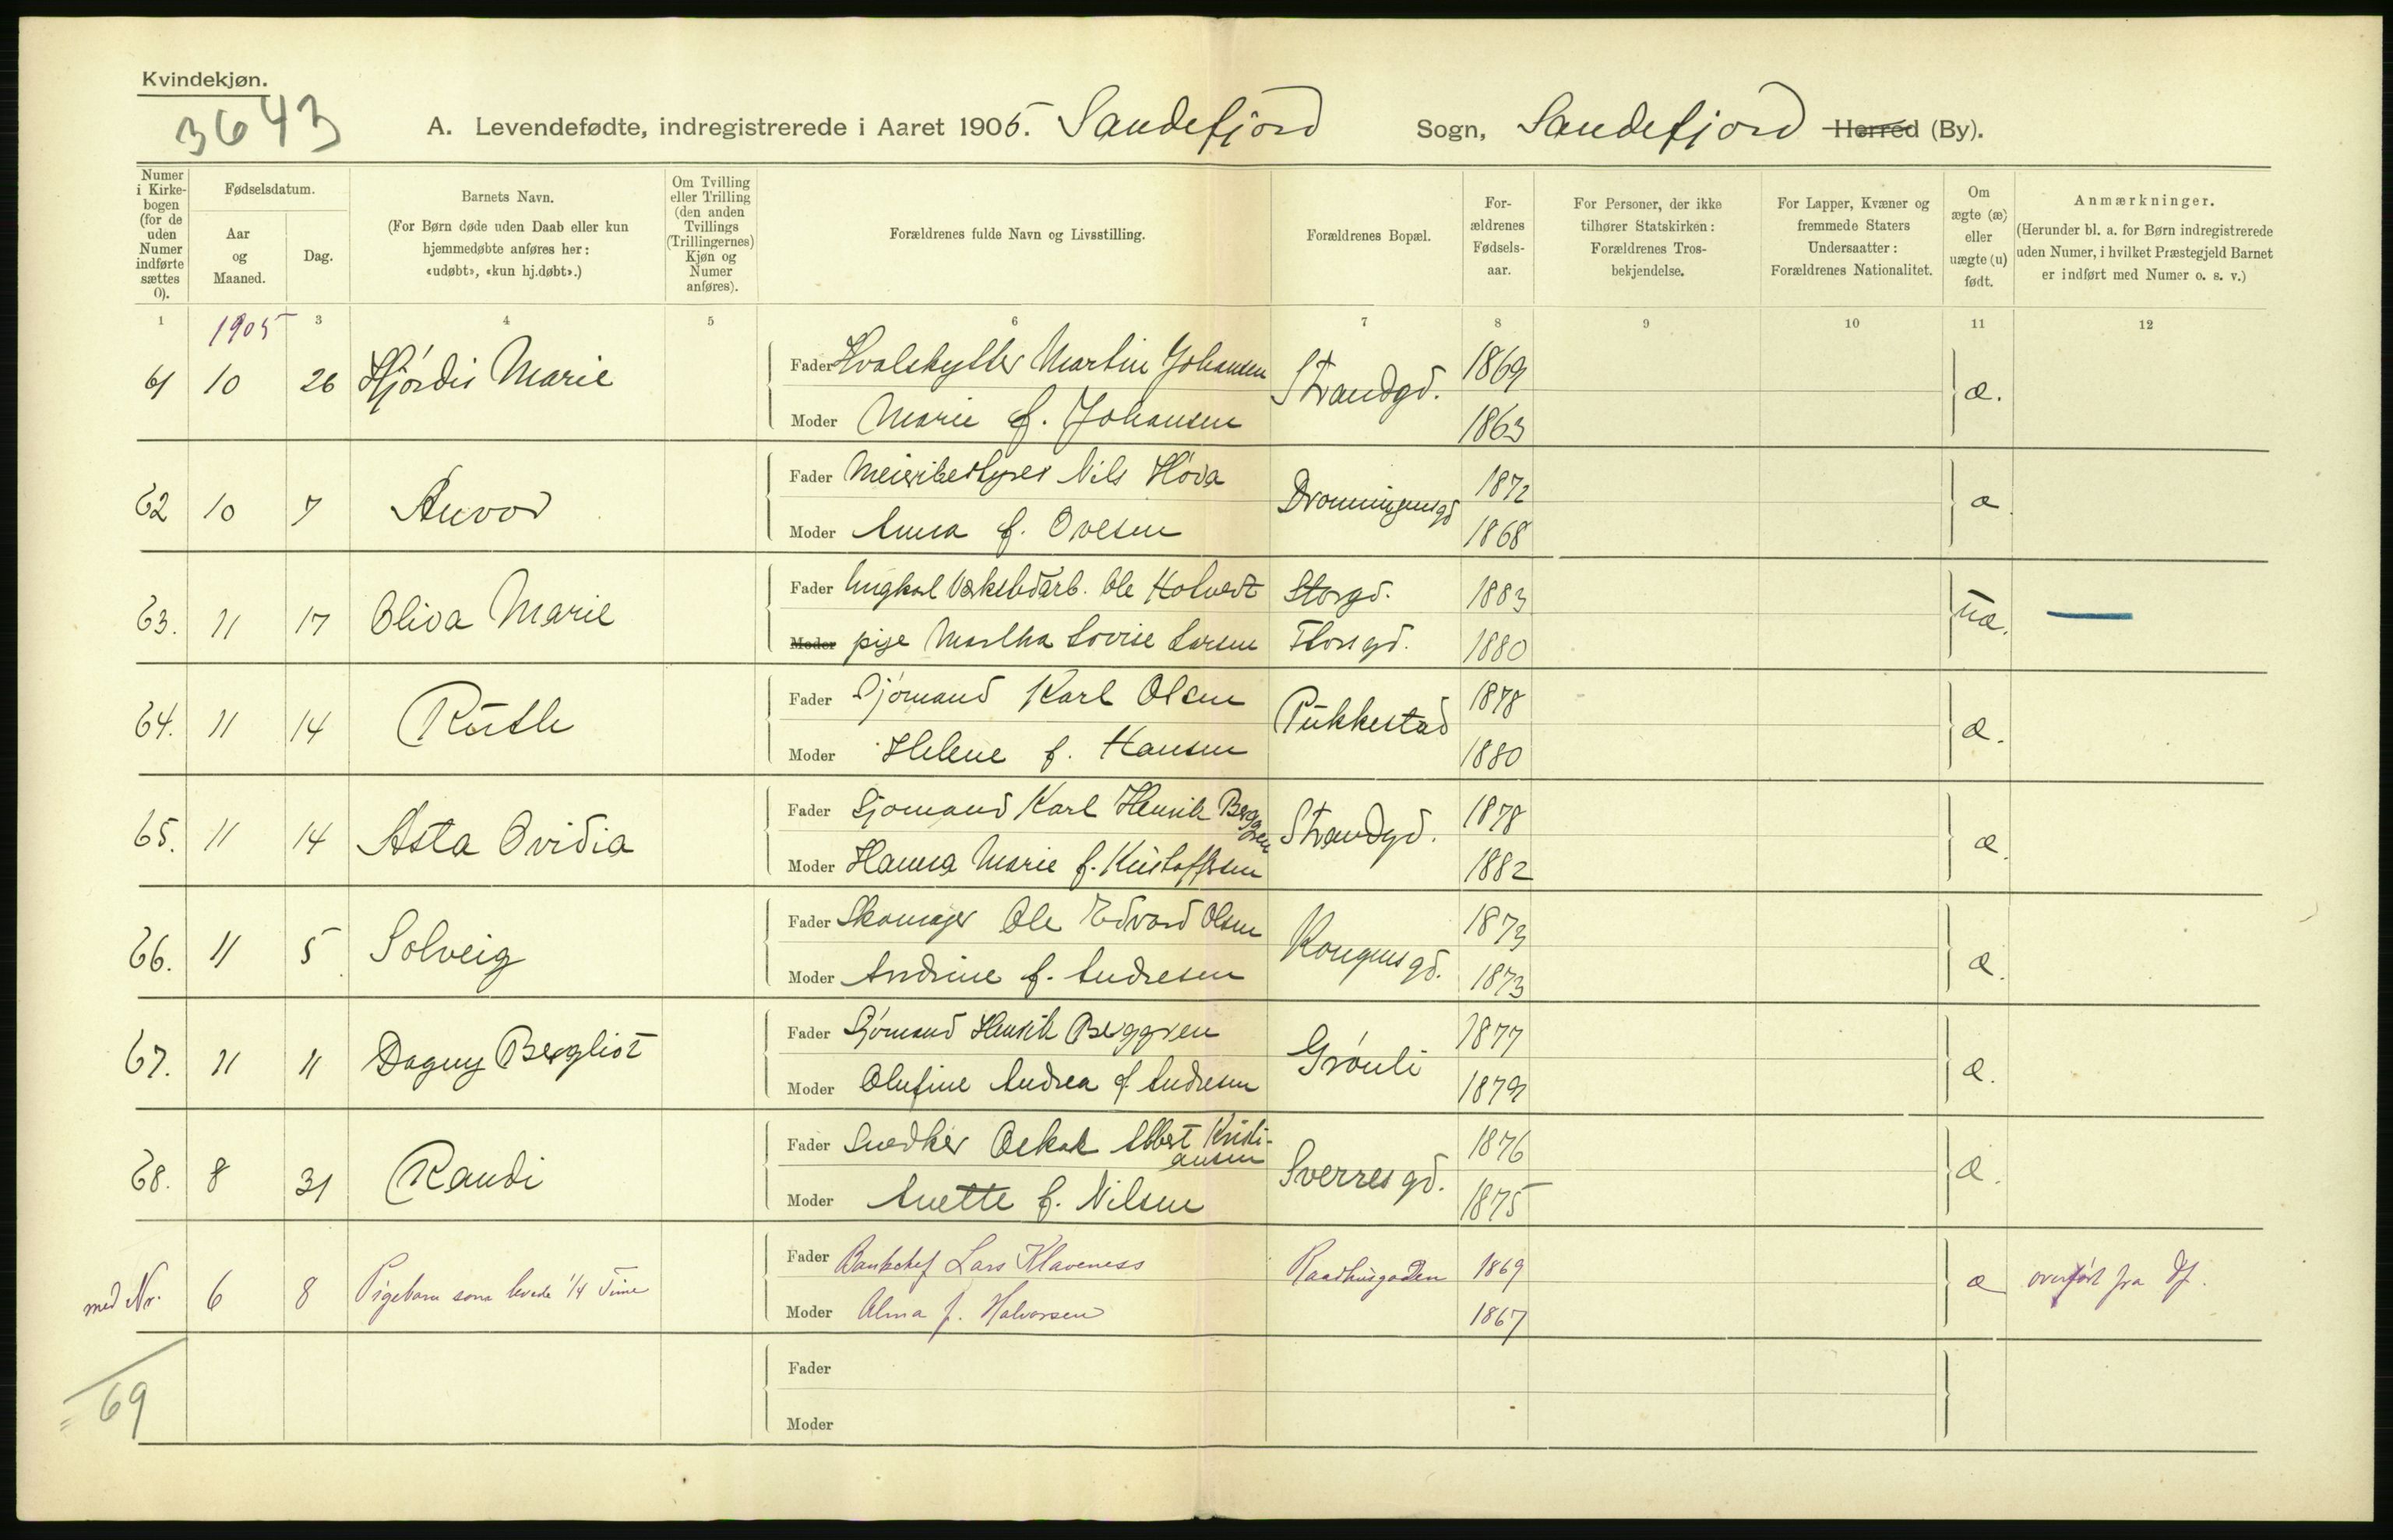 Kvindekjøn.
3643
A. Levendefødte, indregistrerede i Aaret 1905. Sandefjord Sogn, Sandefjord Herred (By).
Numer i Kirkebogen (for de uden Numer indførte sættes 0).
Fødselsdatum.
Aar og Maaned.
Dag.
Barnets Navn.
(For Børn døde uden Daab eller kun
hjemmedøbte anføres her:
«udøbt», «kun hj.døbt».)
Om Tvilling
eller Trilling
(den anden
Tvillings
(Trillingernes)
Kjøn og
Numer
anføres).
Forældrenes fulde Navn og Livsstilling.
Forældrenes Bopæl.
For-
ældrenes
Fødsels-
aar.
For Personer, der ikke
tilhører Statskirken:
Forældrenes Tros-
bekjendelse.
For Lapper, Kvæner og
fremmede Staters
Undersaatter:
Forældrenes Nationalitet.
Om
ægte (æ)
eller
uægte (u)
født.
Anmærkninger.
(Herunder bl. a. for Børn indregistrerede
uden Numer, i hvilket Præstegjeld Barnet
er indført med Numer o. s. v.)
1 3 4 5 6 7 8 9 10 11 12
1905
61 10 26 Hjördis Marie Fader Hvalskytter Martin Johansen Strandgd. 1869 æ.
Moder Marie f. Johansen 1863
62 10 7 Anvor Fader Meieribestyrer Nils Höva Dronningensgd 1872 æ
Moder Anna f. Ovesen 1868
63. 11 17 Oliva Marie Fader Ungkarl Værkstedarb. Ole Holvedt Storgd. 1883 uæ.
Moder pige Martha Lovise Larsen Thorsgd. 1880
64. 11 14 Ruth Fader Sjömand Karl Olsen Pukkestad 1878 æ.
Moder Helene f. Hansen 1880
65. 11 14 Asta Ovidia Fader Sjömand Karl Henrik Berggren Strandgd. 1878 æ.
Moder Hanna Marie f. Kristoffersen 1882
66. 11 5 Solveig Fader Skomager Ole Edvard Olsen Kongensgd. 1873 æ.
Moder Andrine f. Andresen 1873
67. 11 11 Dagny Bergliot Fader Sjömand Henrik Berggren Grönli 1877 æ.
Moder Olufine Andrea f. Andresen 1879
68. 8 31 Randi Fader Snedker Oskar Albert Kristi-
ansen Sverresgd. 1876 æ.
Moder Anette f. Nilsen 1875
med Nr. 6 8 Pigebarn som levede 1/4 Time Fader Bankchef Lars Klaveness Raadhusgaden 1869 æ overført fra Df.
Moder Alma f. Halvorsen 1867
Fader
= 69
Moder